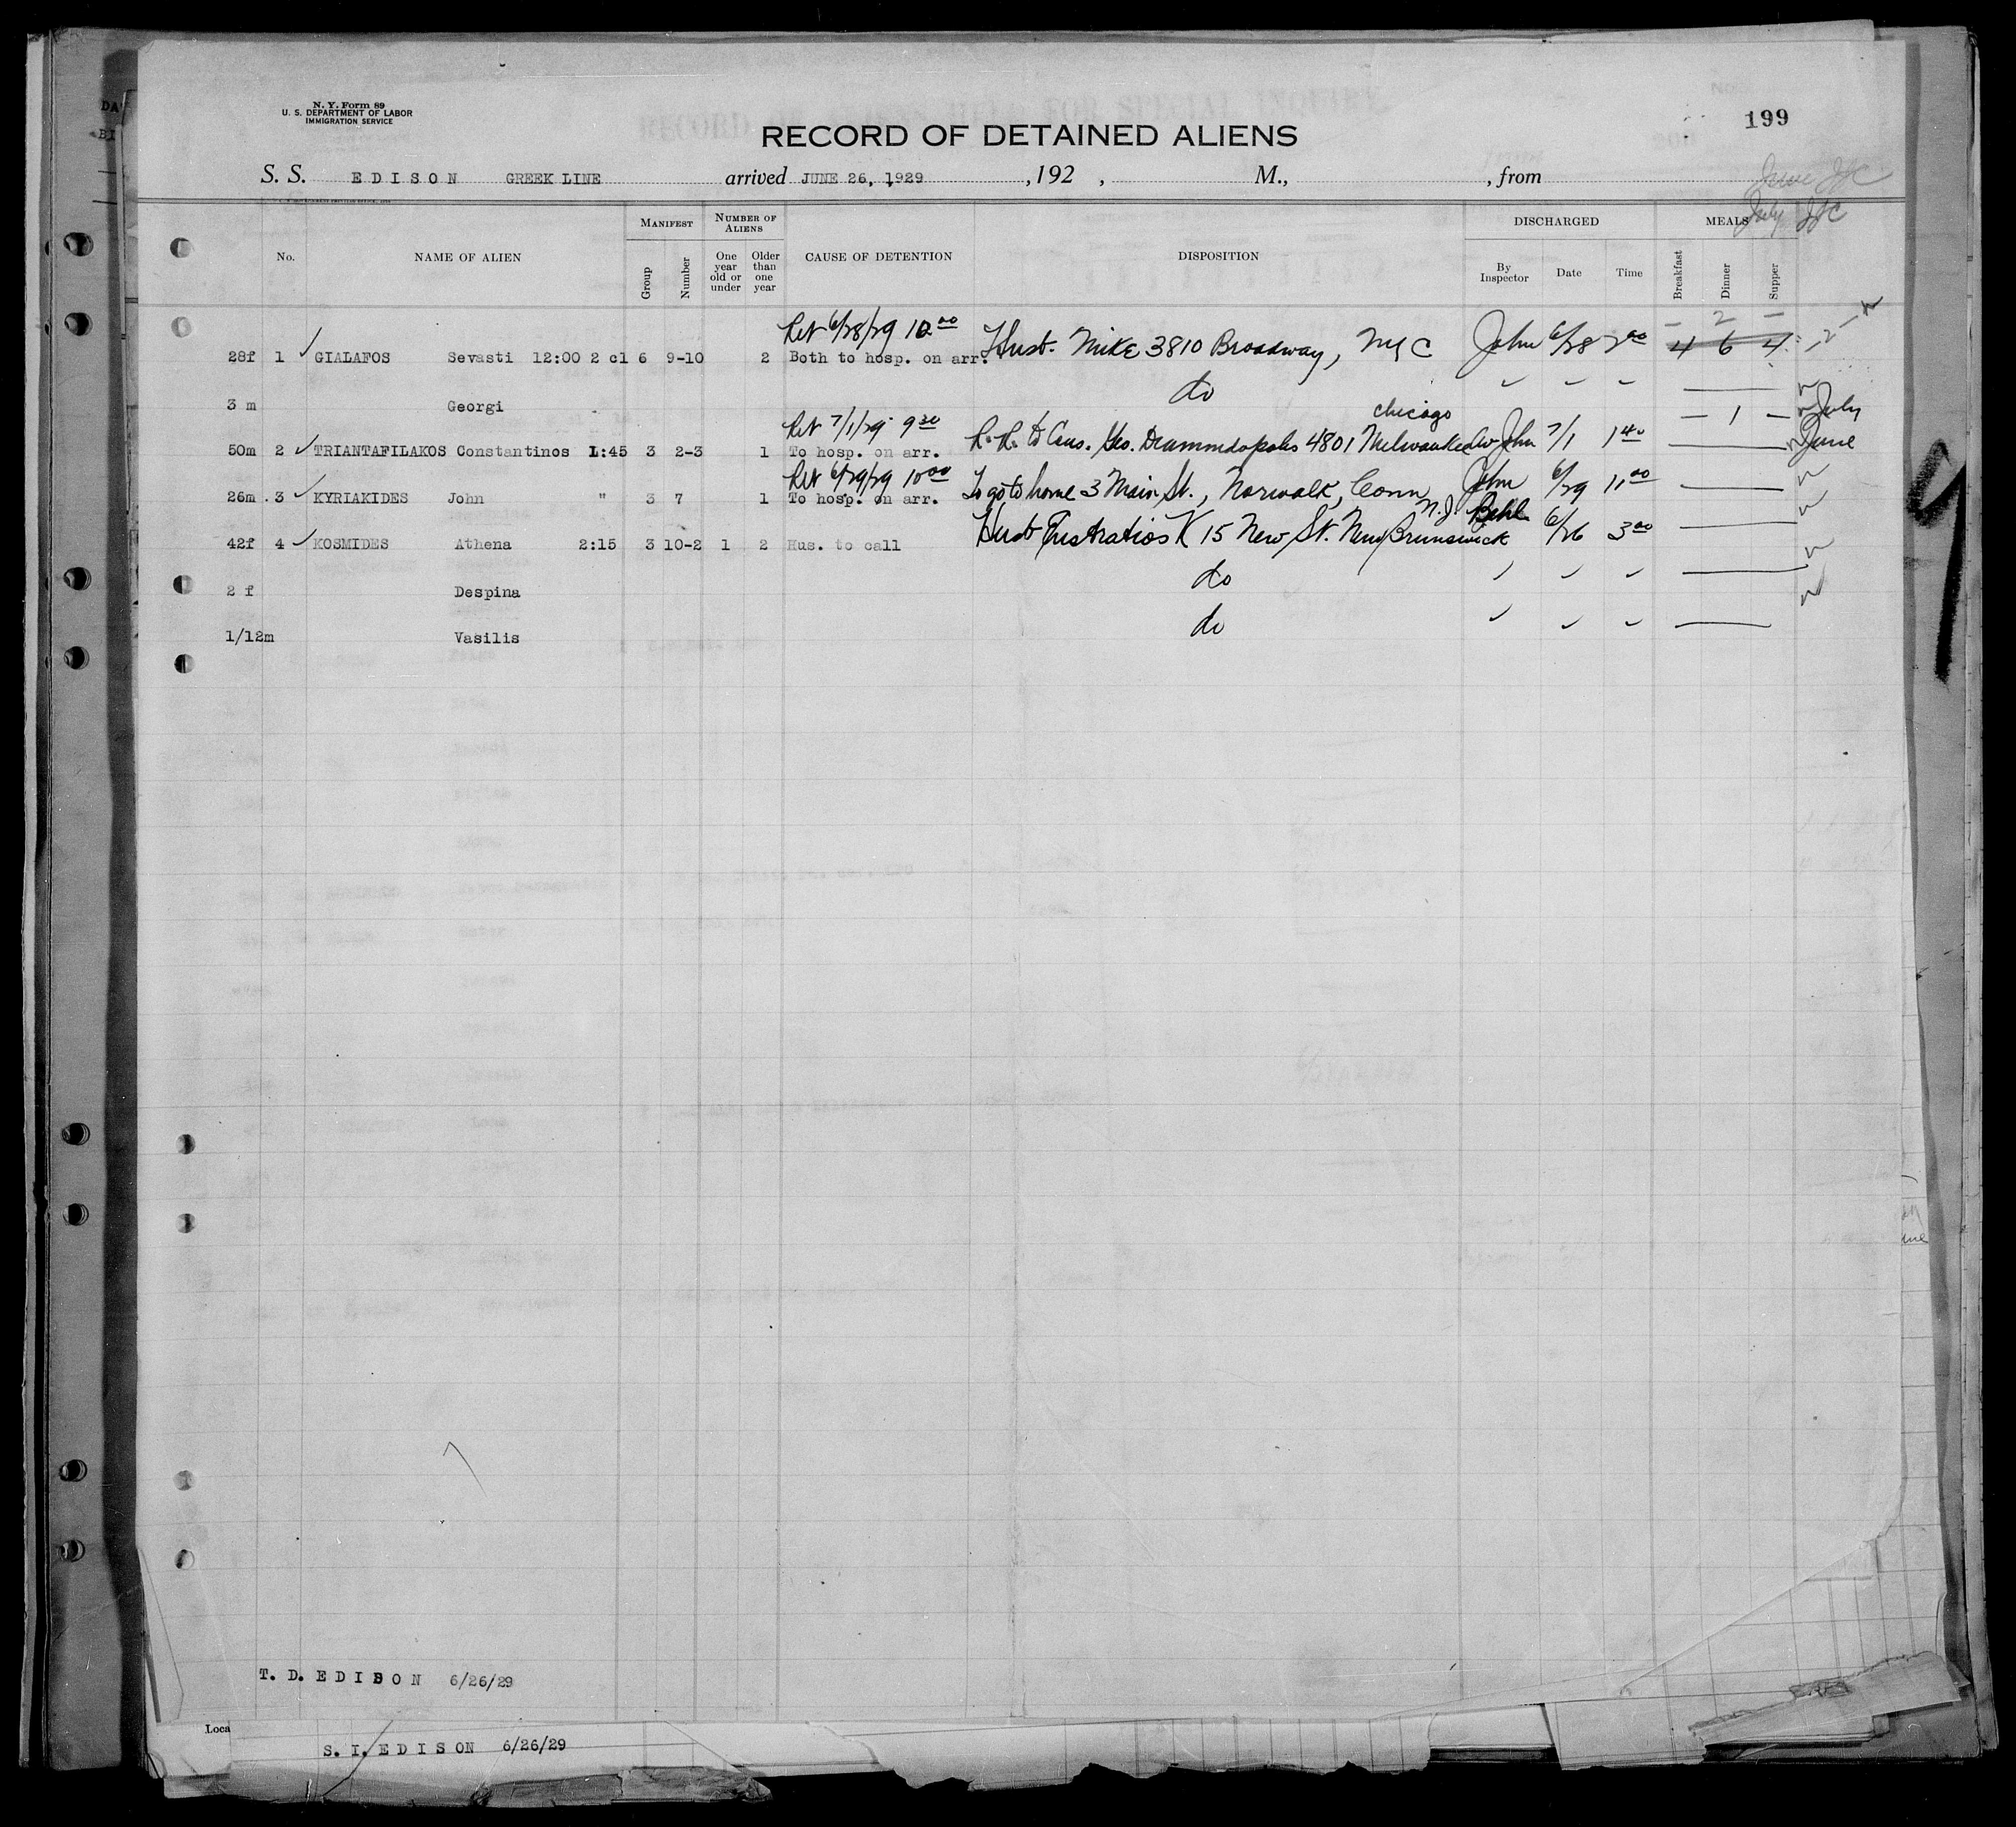 N. Y. Form 89
U. S. DEPARTMENT OF LABOR
IMMIGRATION SERVICE
199
RECORD OF DETAINED ALIENS
S. S. EDISON GREEK LINE arrived JUNE 26, 1929 , 192 , M., , from
June JJC
July JJC
No. NAME OF ALIEN MANIFEST Group Number NUMBER OF ALIENS One year old or under Older than one year CAUSE OF DETENTION DISPOSITION DISCHARGED By Inspector Date Time MEALS Breakfast Dinner Supper
Ret 6/28/29 10 00 — 2 —
28f 1 ✓ GIALAFOS Sevasti 12:00 2 cl 6 9-10 2 Both to hosp. on arr. Husb. Mike 3810 Broadway, NYC John 6/28 2 00 4 6 4
3 m Georgi do ✓ ✓ ✓
Ret 7/1/29 9 30 Chicago — 1 — July
50m 2 ✓ TRIANTAFILAKOS Constantinos 1:45 3 2-3 1 To hosp. on arr. R. R. to Cous. Geo. 4801 Milwaukee Av John 7/1 1 40 June
Ret 6/29/29 10 00
26m 3 ✓ KYRIAKIDES John " 3 7 1 To hosp. on arr. To go to home 3 Main St., Norwalk, Conn John 6/29 11 00
N.J.
42f 4 ✓ KOSMIDES Athena 2:15 3 10-2 1 2 Hus. to call Husb Eustratios K 15 New St. New Brunswick 6/26 3 00
2 f Despina do ✓ ✓ ✓
1/12m Vasilis do ✓ ✓ ✓
T. D. EDISON 6/26/29
Loca
S. I. EDISON 6/26/29